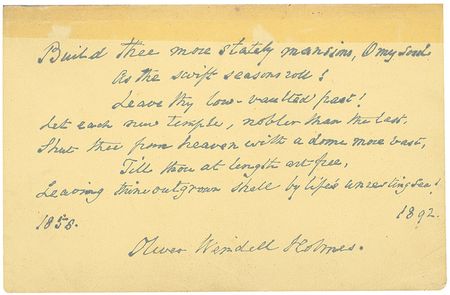 Build thee more stately mansions, O my soul
As the swift seasons roll!
Leave thy low-vaulted past!
Let each new temple, nobler than the last,
Shut thee from heaven with a dome more vast,
Till thou at length art free,
Leaving thine outgrown shell by life's unresting sea!
1858. 1892.
Oliver Wendell Holmes.